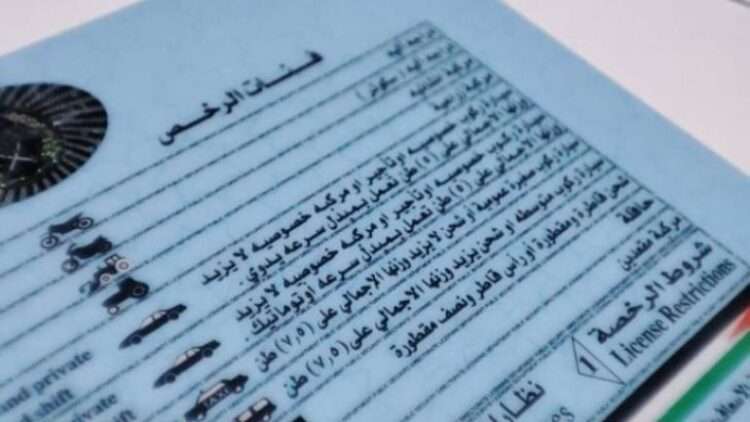 فئات الرخص
مركبة آلية
مركبة آلية (سكوتر)
مركبة زراعية
سيارة ركوب خصوصية او تأجير او مركبة خصوصية لا يزيد
وزنها الاجمالي على (٥) طن تعمل بمبدل سرعة يدوي.
سيارة ركوب خصوصية او تأجير او مركبة خصوصية لا يزيد
وزنها الاجمالي على (٥) طن تعمل بمبدل سرعة اوتوماتيك.
سيارة ركوب صغيرة عمومية او شحن لا يزيد وزنها الاجمالي على (٧,٥) طن
سيارة ركوب متوسطة او شحن يزيد وزنها الاجمالي على (٧,٥) طن
شحن قاطرة ومقطورة أو رأس قاطر ونصف مقطورة
حافلة
مركبة مقعدين
شروط الرخصة
License Restrictions
1
and private
shift
private
shift
TAXI